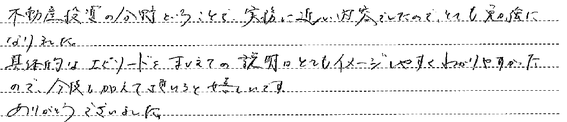 不動産投資の分野ということで、実務に近い内容でしたのでとても勉強に
なりました。
具体的なエピソードをまじえての説明はとてもイメージしやすくわかりやすかった
ので、今後も加えて頂けると嬉しいです
ありがとうございました。